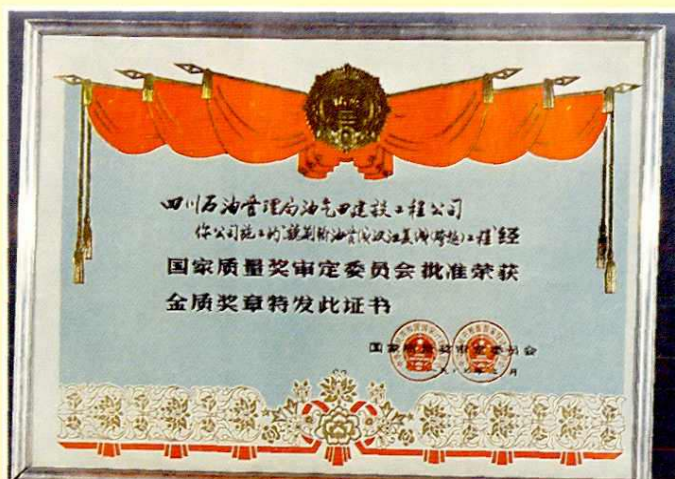 四川石油管理局油气田建设工程公司
你公司施工的"魏荆输油管线汉江跨越工程"经
国家质量奖审定委员会批准荣获
金质奖章特发此证书
国家质量奖审定委员会